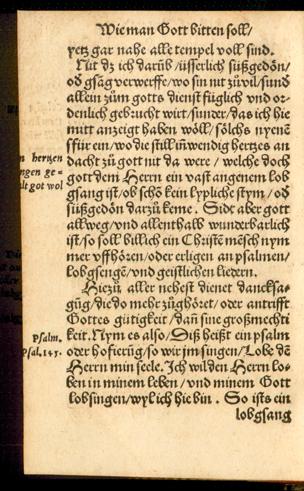 Wie man Gott bitten soll/
yetz gar nahe alle tempel voll sind.
Nüt dz ich darüb/üsserlich süßgedön/
od gsäg verwerffe/wo sin nit zů vil/sund
allein zům gotts dienst füglich vnd or-
denlich gebrucht wirt/sunder/das ich hie
mitt anzeigt haben wöll/sölchs nyenē
ffür ein/wo die still inwendig hertzes an
n hertzen
dacht zů gott nit da were/welche doch
ngen ge=
gott dem Herrn ein vast angenem lob
lt got wol
gsang ist/ob schō kein lypliche stym/od
süßgedön darzů keme. Sidt aber gott
allweg/vnd allenthalb wunderbarlich
ist/so soll billich ein Christē mēsch nym
mer vffhören/oder erligen an psalmen/
lobgsengē/vnd geistlichen liedern.
Hiezů aller nehest dienet dancksa-
gūg/die do mehr zůghöret/oder antrifft
Gottes gütigkeit/dañ sine großmechti
Psalm.
keit. Nym es also/Diß heißt ein psalm
Psal.145.
oder hofierūg/so wir jm singen/Lobe dē
Herrn min seele. Ich wil den Herrn lo-
ben in minem leben/vnd minem Gott
lobsingen/wyl ich hie bin. So ists ein
lobgsang